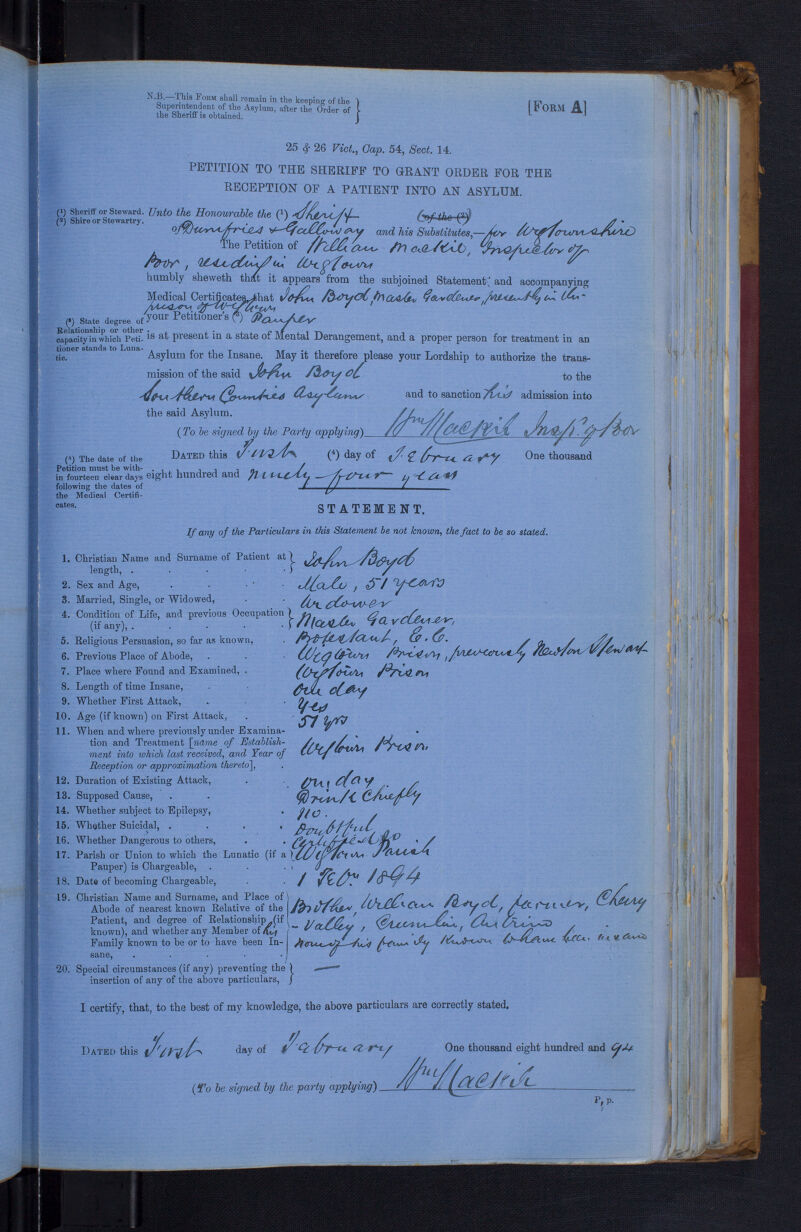 N.B.—This Form shall remain in the keeping of the
Superintendent of the Asylum, after the Order of
the Sheriff is obtained.
[Form A]
25 & 26 Vict., Cap. 54, Sect. 14.
PETITION TO THE SHERIFF TO GRANT ORDER FOR THE
RECEPTION OF A PATIENT INTO AN ASYLUM.
(1) Sheriff or Steward.
(2) Shire or Stewartry.
Unto the Honourable the (1) Sheriff (of the (2))
of Dumfries & Galloway and his Substitutes,—for Wigtownshire
The Petition of William Mackie, Inspector of
Poor, residing in Wigtown
humbly sheweth that it appears from the subjoined Statement and accompanying
Medical Certificates, that John Boyd, Master Gardener, presently in the
prison of Wigtown
(3) State degree of
Relationship or other
capacity in which Peti-
tioner stands to Luna-
tic.
your Petitioner's (3) Pauper
is at present in a state of Mental Derangement, and a proper person for treatment in an
Asylum for the Insane. May it therefore please your Lordship to authorize the trans-
mission of the said John Boyd to the
Southern Counties Asylum and to sanction his admission into
the said Asylum.
(To be signed by the Party applying) Wm Mackie Inspr. of Poor
(4) The date of the
Petition must be with-
in fourteen clear days
following the dates of
the Medical Certifi-
cates.
Dated this First (4) day of February One thousand
eight hundred and ninety-four years
STATEMENT.
If any of the Particulars in this Statement be not known, the fact to be so stated.
1. Christian Name and Surname of Patient at
length, . John Boyd
2. Sex and Age, Male, 51 years
3. Married, Single, or Widowed, Widower
4. Condition of Life, and previous Occupation
(if any), . Master Gardener,
5. Religious Persuasion, so far as known, Protestant, E.C.
6. Previous Place of Abode, . Wigtown Prison, previously Newton Stewart
7. Place where Found and Examined, . Wigtown Prison
8. Length of time Insane, One day
9. Whether First Attack, Yes
10. Age (if known) on First Attack, 51 yrs
11. When and where previously under Examina-
tion and Treatment [name of Establish-
ment into which last received, and Year of
Reception or approximation thereto], Wigtown Prison
12. Duration of Existing Attack, one day
13. Supposed Cause, Drink Chiefly
14. Whether subject to Epilepsy, No.
15. Whether Suicidal, . Doubtful
16. Whether Dangerous to others, Certified so
17. Parish or Union to which the Lunatic (if a
Pauper) is Chargeable, Wigtown Parish
18. Date of becoming Chargeable, 1 Feby. 1894
19. Christian Name and Surname, and Place of
Abode of nearest known Relative of the
Patient, and degree of Relationship (if
known), and whether any Member of his
Family known to be or to have been In-
sane,
Brother, William Boyd, farmer, Cherry
-Valley, Crumlin, Antrim
None of his family known to have been insane
20. Special circumstances (if any) preventing the
insertion of any of the above particulars, —
I certify, that, to the best of my knowledge, the above particulars are correctly stated.
Dated this First day of February One thousand eight hundred and 94
(To be signed by the party applying) Wm Mackie
P, p.